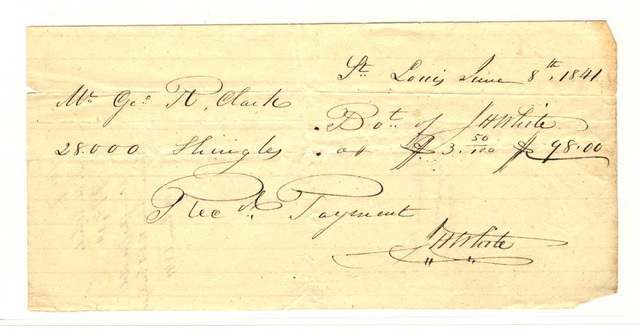 St. Louis June 8th, 1841
Mr Geo R, Clark
Bot. of J H White
28.000 Shingles . at $ 3.50/100 $ 98.00
Rec d. Payment
J H White